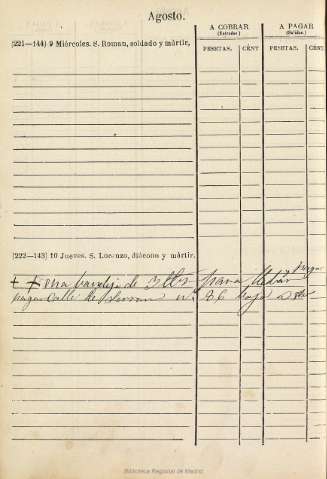 Agosto.
A COBRAR
(Entradas)
A PAGAR
(Salidas.)
PESETAS. CÉNT PESETAS. CÉNT
(221—144) 9 Miércoles. S. Roman, soldado y mártir,
(222—143) 10 Jueves. S. Lorenzo, diácono y mártir.
una bandeja de para
calle de n. 86 bajo
Biblioteca Regional de Madrid